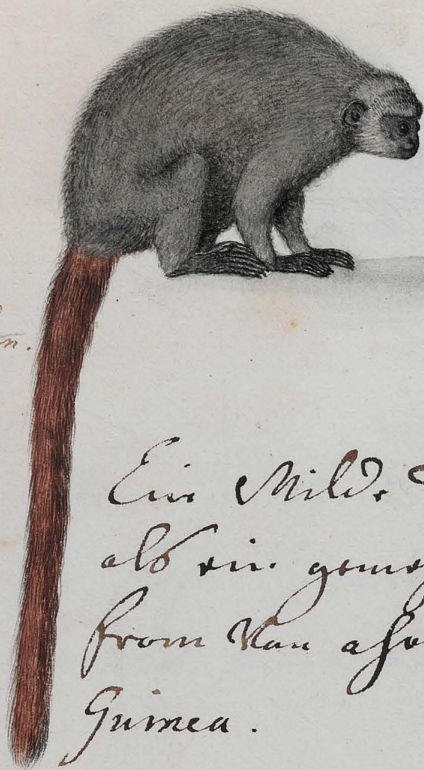 n.
Ein Wild.
als ein geme
from Van
Guinea.